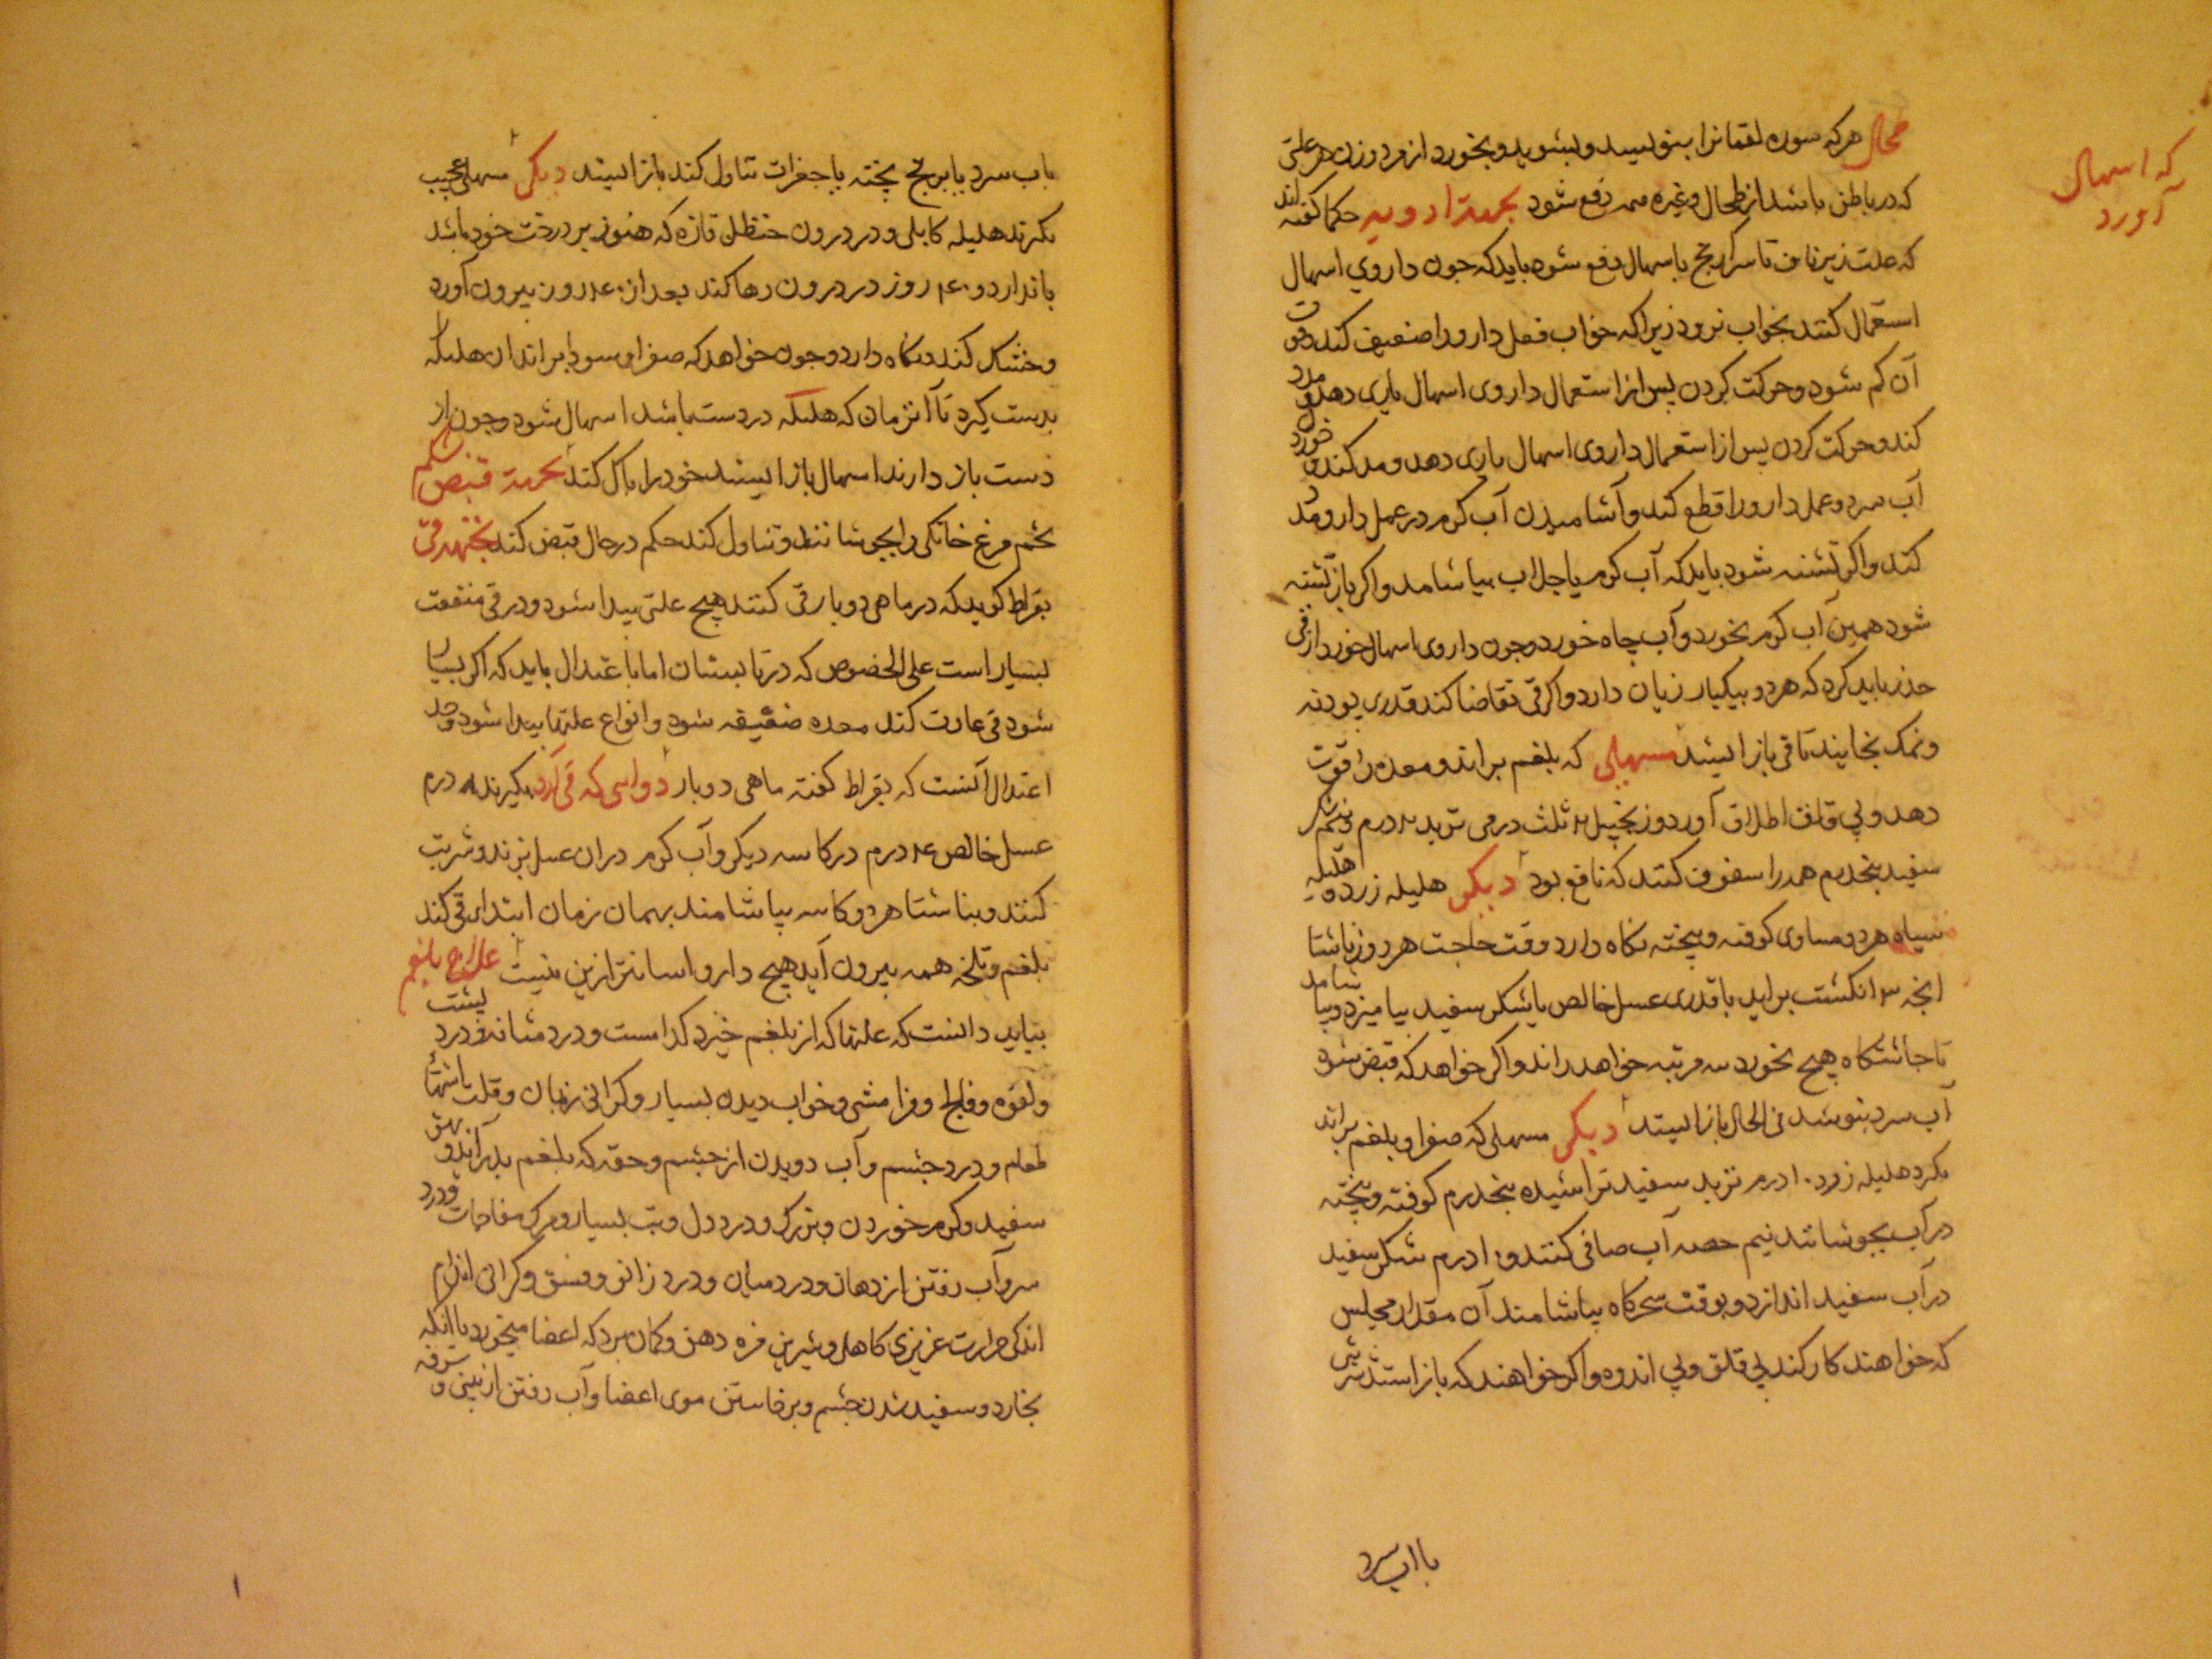 که اسهال
آورد
طحال هرکه سوره لقمانرا بنویسد و بشوید و بخورد از مرد و زن هر علتی
که در باطن باشد از طحال و غیره همه دفع شود بجهتة ادویه حکما گفته اند
که علت زیر ناف تا سر آرنج باسهال دفع شود باید که چون داروی اسهال
استعمال کنند بخواب نرود زیرا که خواب فعل دارو را ضعیف کند و قوت
آن کم شود و حرکت کردن پس از استعمال داروی اسهال یاری دهد و مدد
کند و حرکت کردن پس از استعمال داروی اسهال یاری دهد و مدد کند و خورد
آب سرد و عمل دارو را قطع کند و آشامیدن آب گرم در عمل دارو مدد
کند و اگر تشنه شود باید که آب گرم یا جلاب بیاشامد و اگر باز تشنه
شود همین آب گرم بخورد و آب چاه خورد و چون داروی اسهال خورد از قی
حذر باید کرد که هر دو بیکبار زیان دارد و اگر قی تقاضا کند قدری پودنه
و نمک بخایند تا قی باز ایستد مسهلی که بلغم براند و معده را قوت
دهد و بی قلق اطلاق آورد و زنجبیل ۲ ثلث درمی تربد ۲ درم و شکر
سفید پنجدرم همه را سفوف کنند که نافع بود دیگر هلیله زرد و هلیله
سیاه هر دو مساوی کوفته و بیخته نگاه دارد وقت حاجت هر روز ناشتا
انچه ۳ انگشت براید با قدری عسل خالص یا شکر سفید بیامیزد و بیاشامد
تا چاشتگاه هیچ نخورد سه مرتبه خواهد راند و اگر خواهد که قبض شود
آب سرد بنوشد فی الحال باز ایستد دیگر مسهلی که صفرا و بلغم براند
بگیرد هلیله زرد ۱۰ درم تربد سفید تراشیده پنجدرم کوفته و بیخته
در آب بجوشانند نیم حصه آب صافی کنند و ۱۰ درم شکر سفید
در آب سفید اندازد و بوقت سحرگاه بیاشامند آن مقدار مجلس
که خواهند کار کند بی قلق و بی اندوه و اگر خواهند که باز استد شربتی
با اب سرد
باب سرد یا برنج پخته یا جغرات تناول کند باز ایستد دیگر مسهل عجیب
بگیرند هلیله کابلی و در درون حنظل تازه که هنوز بر درخت خود باشد
باندازد و ۴۰ روز در درون رها کند بعد از ۴۰ روز بیرون آورد
و خشک کند و نگاه دارد و چون خواهد که صفرا و سودا براند ان هلیله را
بدست گیرد تا آنزمان که هلیله در دست باشد اسهال شود و چون از
دست باز دارند اسهال باز ایستد خود را پاک کند بجهتة قبض شکم
تخم مرغ خانگی را بجوشانند و تناول کند حکم در حال قبض کند بجهتة قی
بقراط گوید که در ماهی دوبار قی کنند هیچ علتی پیدا نشود و در قی منفعت
بسیار است علی الخصوص که در تابستان اما باعتدال باید که اگر بسیار
شود قی عادت کند معده ضعیف شود و انواع علتها پیدا شود و حد
اعتدال آنست که بقراط گفته ماهی دوبار دوایی که قی آرد بگیرند درم
عسل خالص ۴ درم در کاسه دیگر و آب گرم دران عسل بزنند و شربت
کنند و بناشتا هر دو کاسه بیاشامند بهمان زمان ابتدای قی کند
بلغم و تلخه همه بیرون آید هیچ دارو اسانتر ازین نیست علاج بلغم
بباید دانست که علتها که از بلغم خیزد کدامست درد مثانه و درد پشت
و لقوه و فالج و فرامشی و خواب دیدن بسیار و گرانی زبان و قلت اشتهاء
طعام و درد چشم و آب دویدن از چشم و حقه که بلغم بدر آید و بهق
سفید و گرم خوردن و بترک و درد دل و تب بسیار و مرگ مفاجات و درد
سر و آب رفتن از دهان و درد میان و درد زانو و نسق و گرانی اندام
اندکی حرارت عزیزی کاهلی و شیرین مزه دهن و گمان برد که اعضا میخورد یا آنکه
بخارد و سفید شدن چشم و برخاستن موی اعضا و آب رفتن از بینی و سرفه
۱